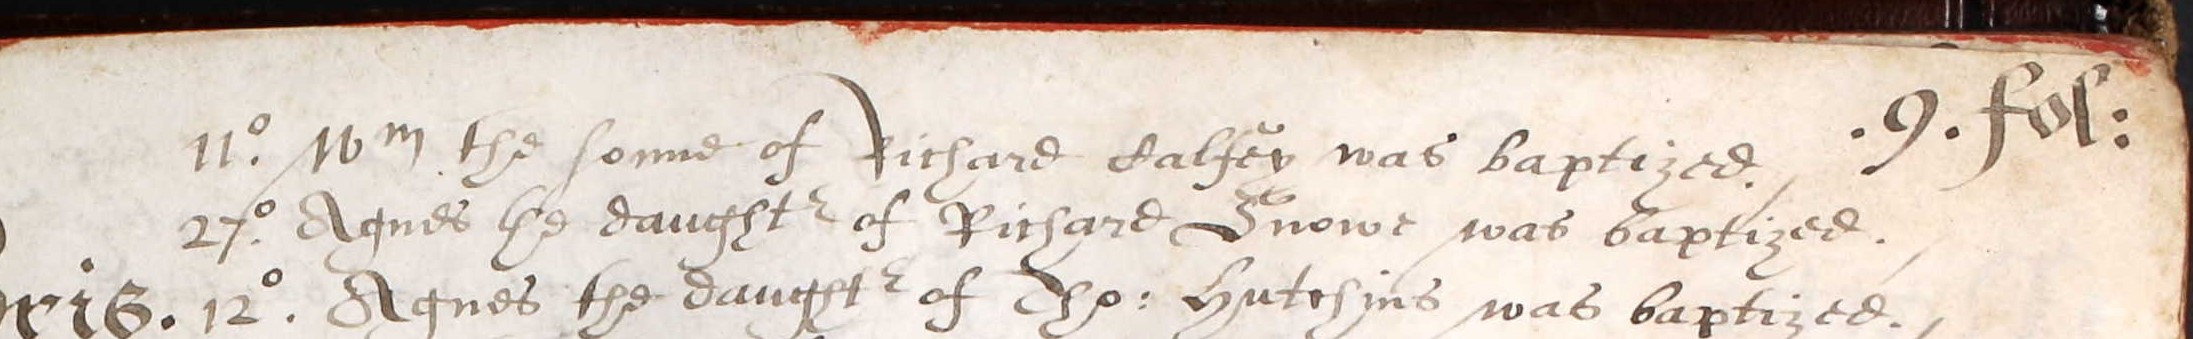 .9. fol:
11o. Wm the sonne of Richard was baptized.
27o. Agnes he daughtr of Richard Snowe was baptized.
ris. 12o. Agnes the daughtr of Tho: Hutchins was baptized.